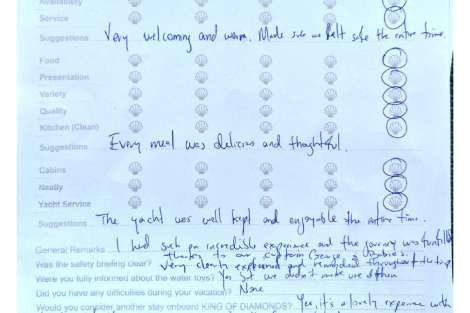 Availability
Service
Suggestions Very welcoming and warm. Made sure we felt safe the entire time.
Food
Presentation
Variety
Quality
Kitchen (Clean)
Suggestions Every meal was delicious and thoughtful.
Cabins
Neatly
Yacht Service
Suggestions The yacht was well kept and enjoyable the entire time.
General Remarks I had such an incredible experience and the journey was
thanks to our Captain George
Was the safety briefing clear? Very clearly explained and throughout the trip
Were you fully informed about the water toys? Yes but we didn't make use of them
Did you have any difficulties during your vacation? None
Would you consider another stay onboard KING OF DIAMONDS?... Yes, it's a lovely experience with